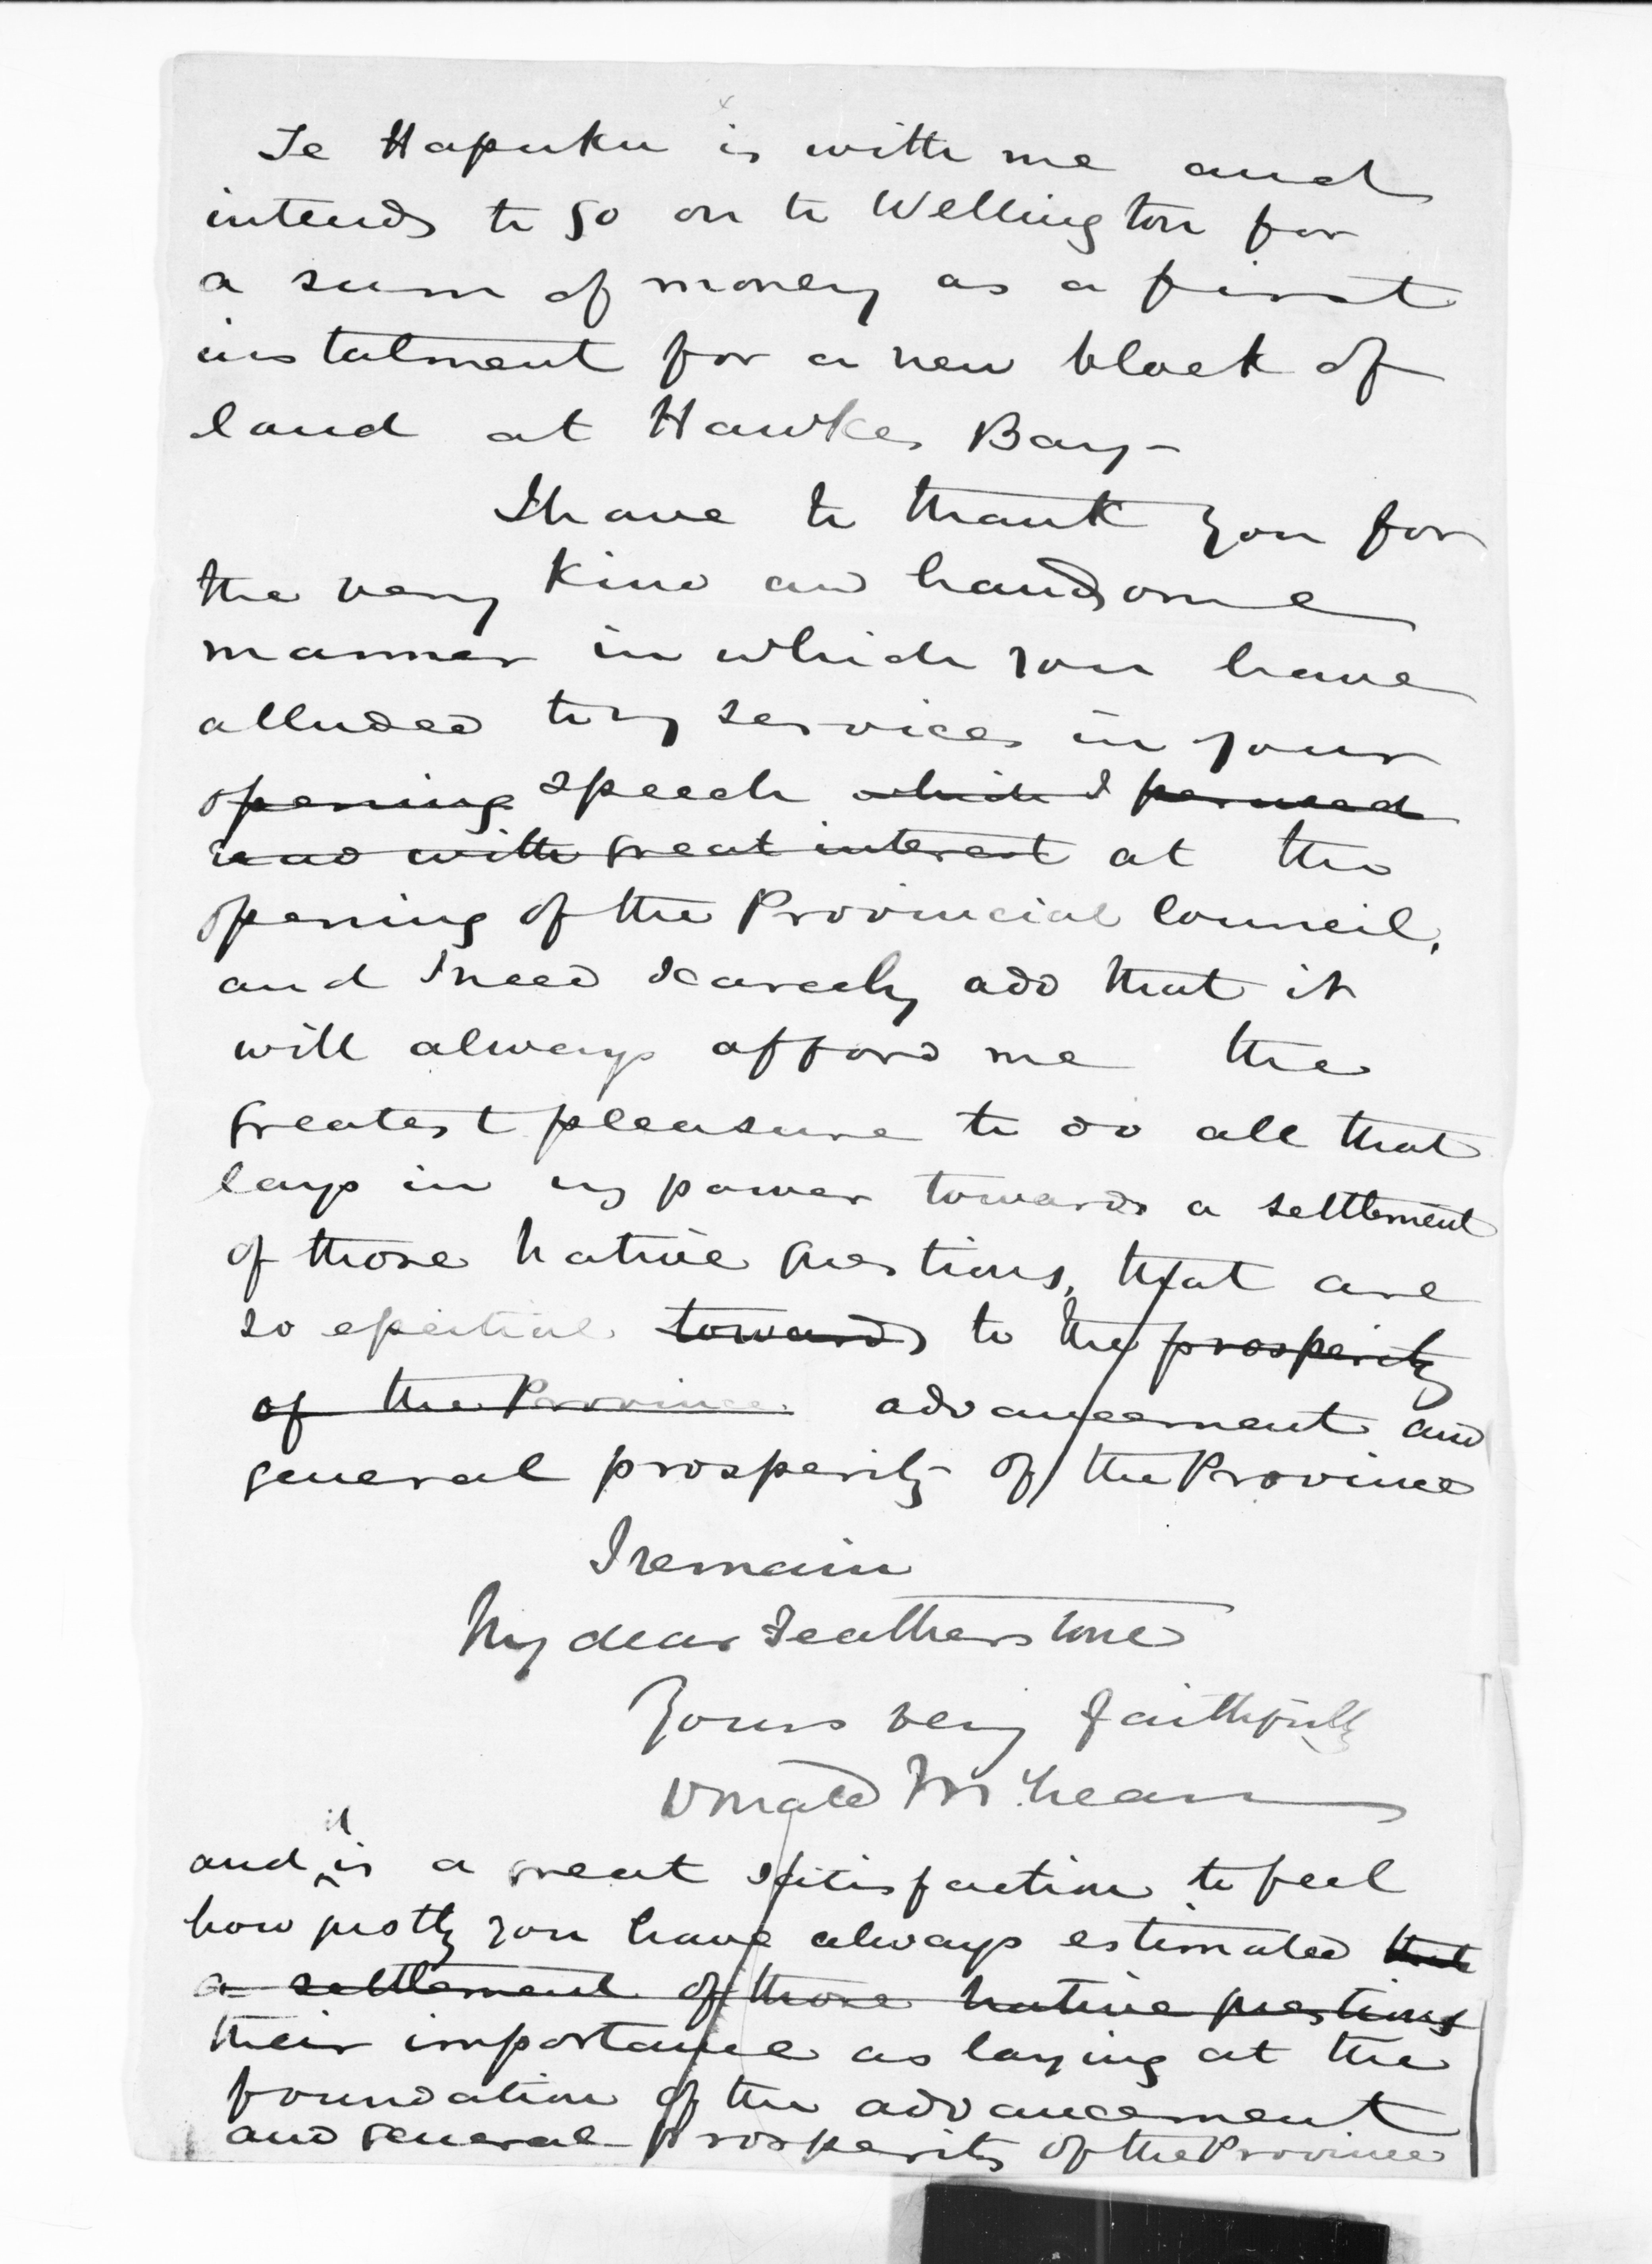 Te Hapuku is with me and
intends to go on to Wellington for
a sum of money as a first
instalment for a new block of
land at Hawkes Bay -
I have to thank you for
the very kind and handsome
manner in which you have
alluded to my services in your
opening speech which I perused
read with great interest at the
opening of the Provincial Council,
and I need scarcely add that it
will always afford me the
greatest pleasure to do all that
lays in my power towards a settlement
of those native questions, that are
so essential towards to the prosperity
of the Province advancement and
general prosperity of the Province
I remain
My dear Featherstone
Yours very faithfully
Donald McLean
and it is a great satisfaction to feel
how justly you have always estimated that
a settlement of those native questions
their importance as laying at the
foundation of the advancement
and general prosperity of the Province